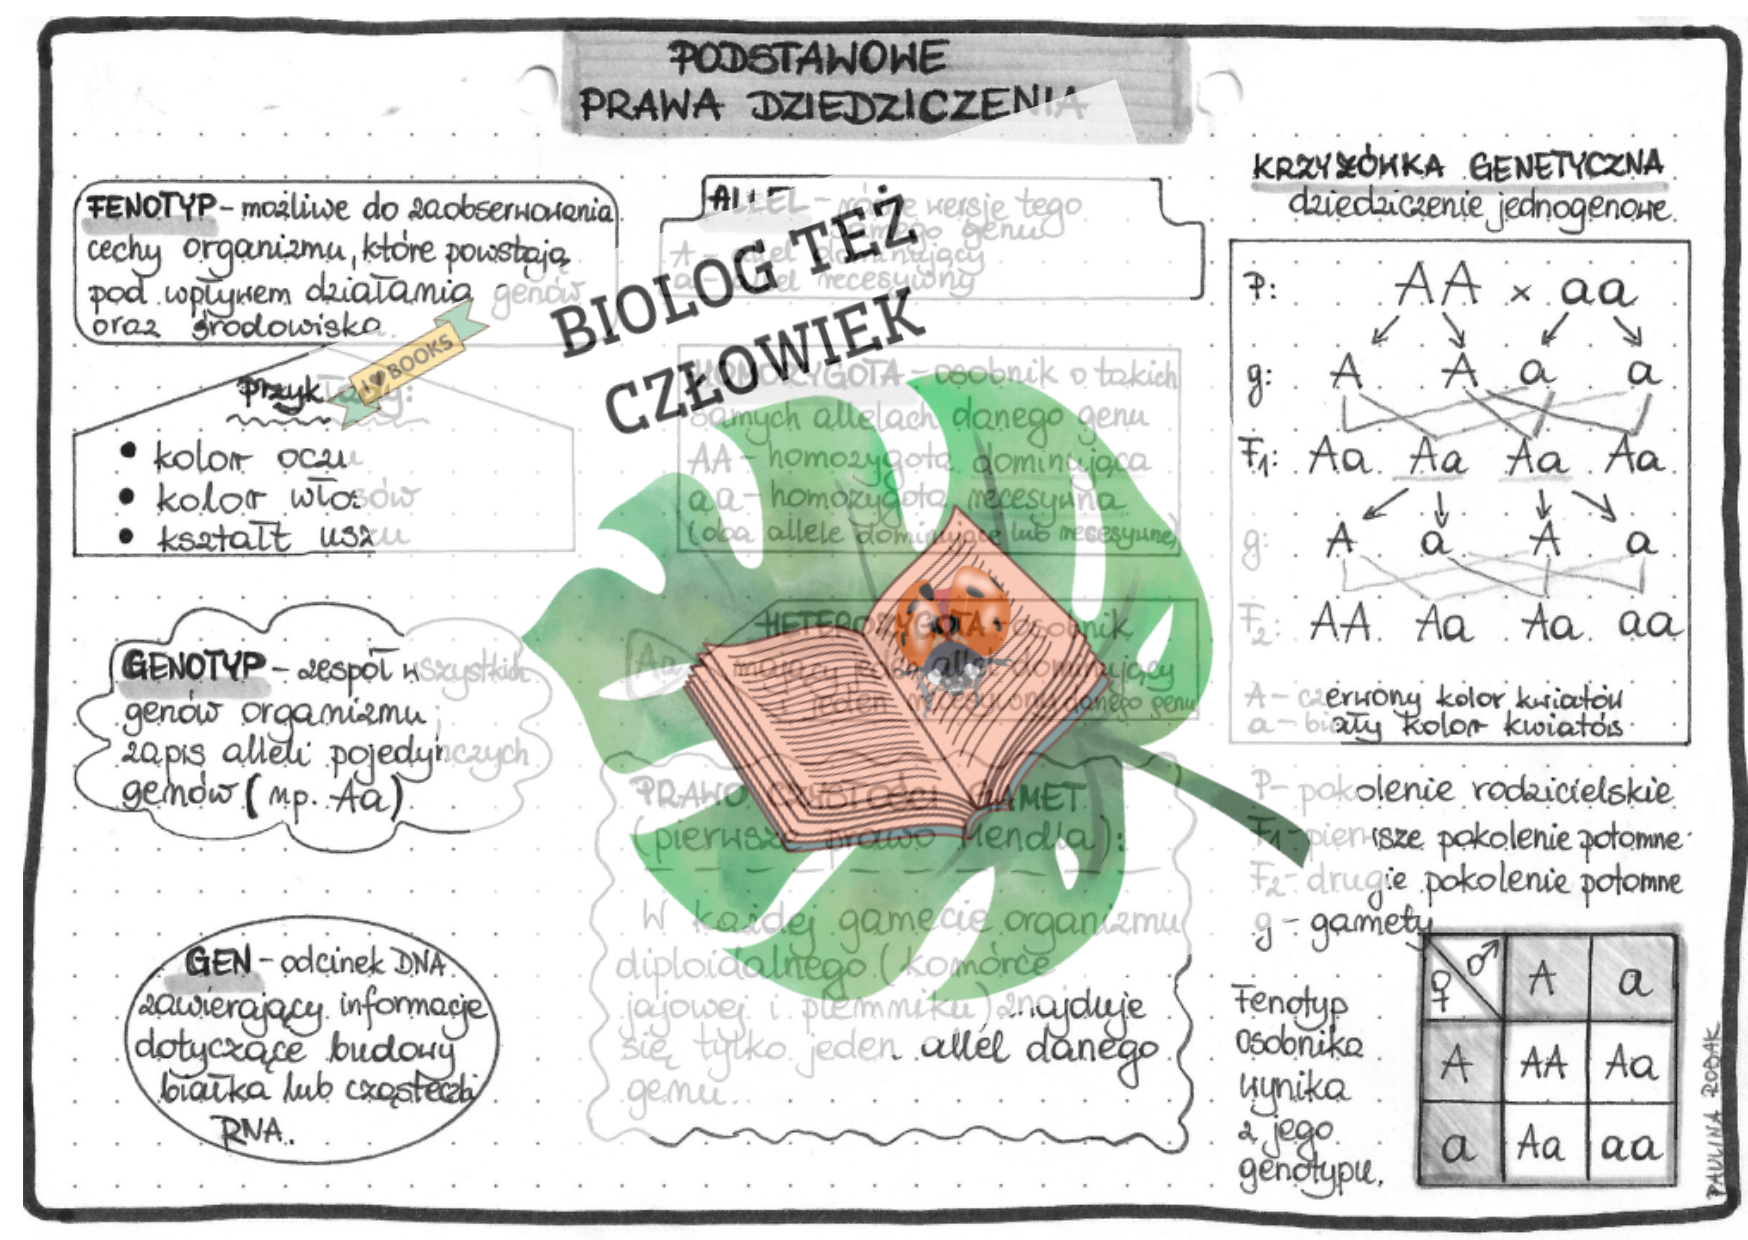 PODSTAWOWE
PRAWA DZIEDZICZENIA
FENOTYP - możliwe do zaobserwowania
cechy organizmu, które powstają
pod wpływem działania genów
oraz środowiska.
Przykłady:
• kolor oczu
• kolor włosów
• kształt uszu
GENOTYP - zespół wszystkich
genów organizmu;
zapis alleli pojedynczych
genów (np. Aa)
GEN - odcinek DNA
zawierający informacje
dotyczące budowy
białka lub cząsteczki
RNA.
I ♥ BOOKS
BIOLOG TEŻ
CZŁOWIEK
ALLEL - różne wersje tego
samego genu
A - allel dominujący
a - allel recesywny
HOMOZYGOTA - osobnik o takich
samych allelach danego genu
AA - homozygota dominująca
aa - homozygota recesywna
(oba allele dominujące lub recesywne)
HETEROZYGOTA - osobnik
Aa mający jeden allel dominujący
i jeden recesywny danego genu
PRAWO CZYSTOŚCI GAMET
(pierwsze prawo Mendla):
W każdej gamecie organizmu
diploidalnego (komórce
jajowej i plemniku) znajduje
się tylko jeden allel danego
genu.
KRZYŻÓWKA GENETYCZNA
dziedziczenie jednogenowe
P: AA × aa
g: A A a a
F1: Aa Aa Aa Aa
g: A a A a
F2: AA Aa Aa aa
A - czerwony kolor kwiatów
a - biały kolor kwiatów
P - pokolenie rodzicielskie
F1 - pierwsze pokolenie potomne
F2 - drugie pokolenie potomne
g - gamety
Fenotyp
osobnika
wynika
z jego
genotypu.
♀ ♂ A a
A AA Aa
a Aa aa
PAULINA RODAK